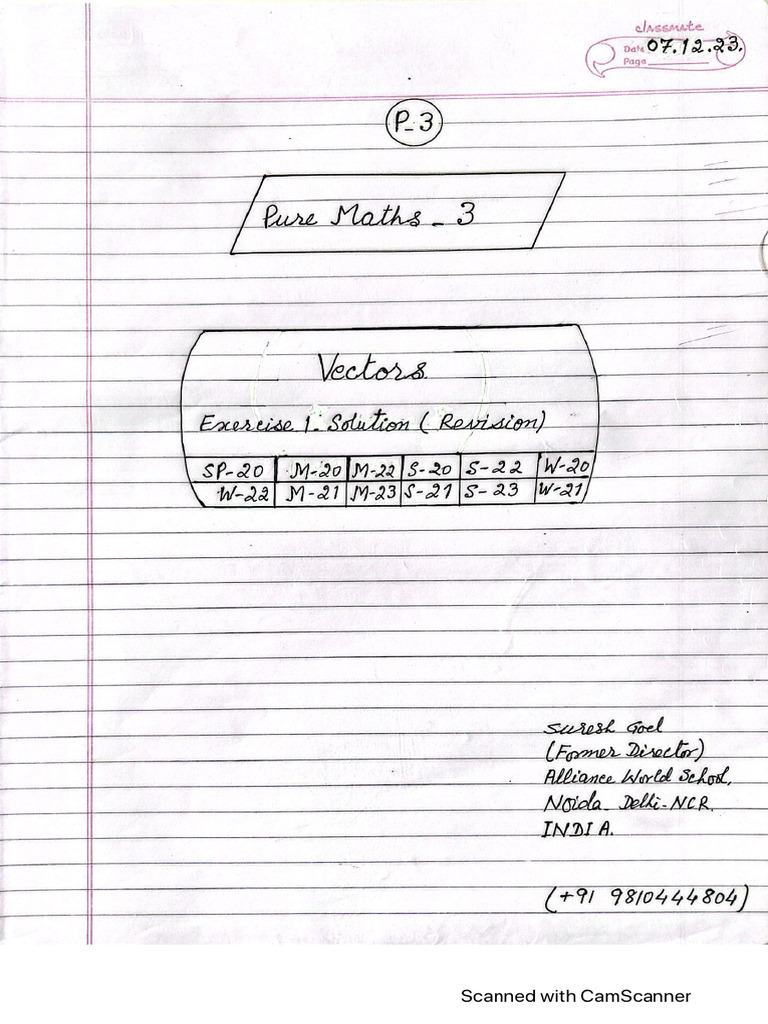 classmate
Date 07.12.23.
Page
P-3
Pure Maths - 3
Vectors.
Exercise 1. Solution ( Revision)
SP-20 M-20 M-22 S-20 S-22 W-20
W-22 M-21 M-23 S-21 S-23 W-21
Suresh Goel
(Former Director)
Alliance World School,
Noida Delhi-NCR.
INDIA.
(+91 9810444804)
Scanned with CamScanner